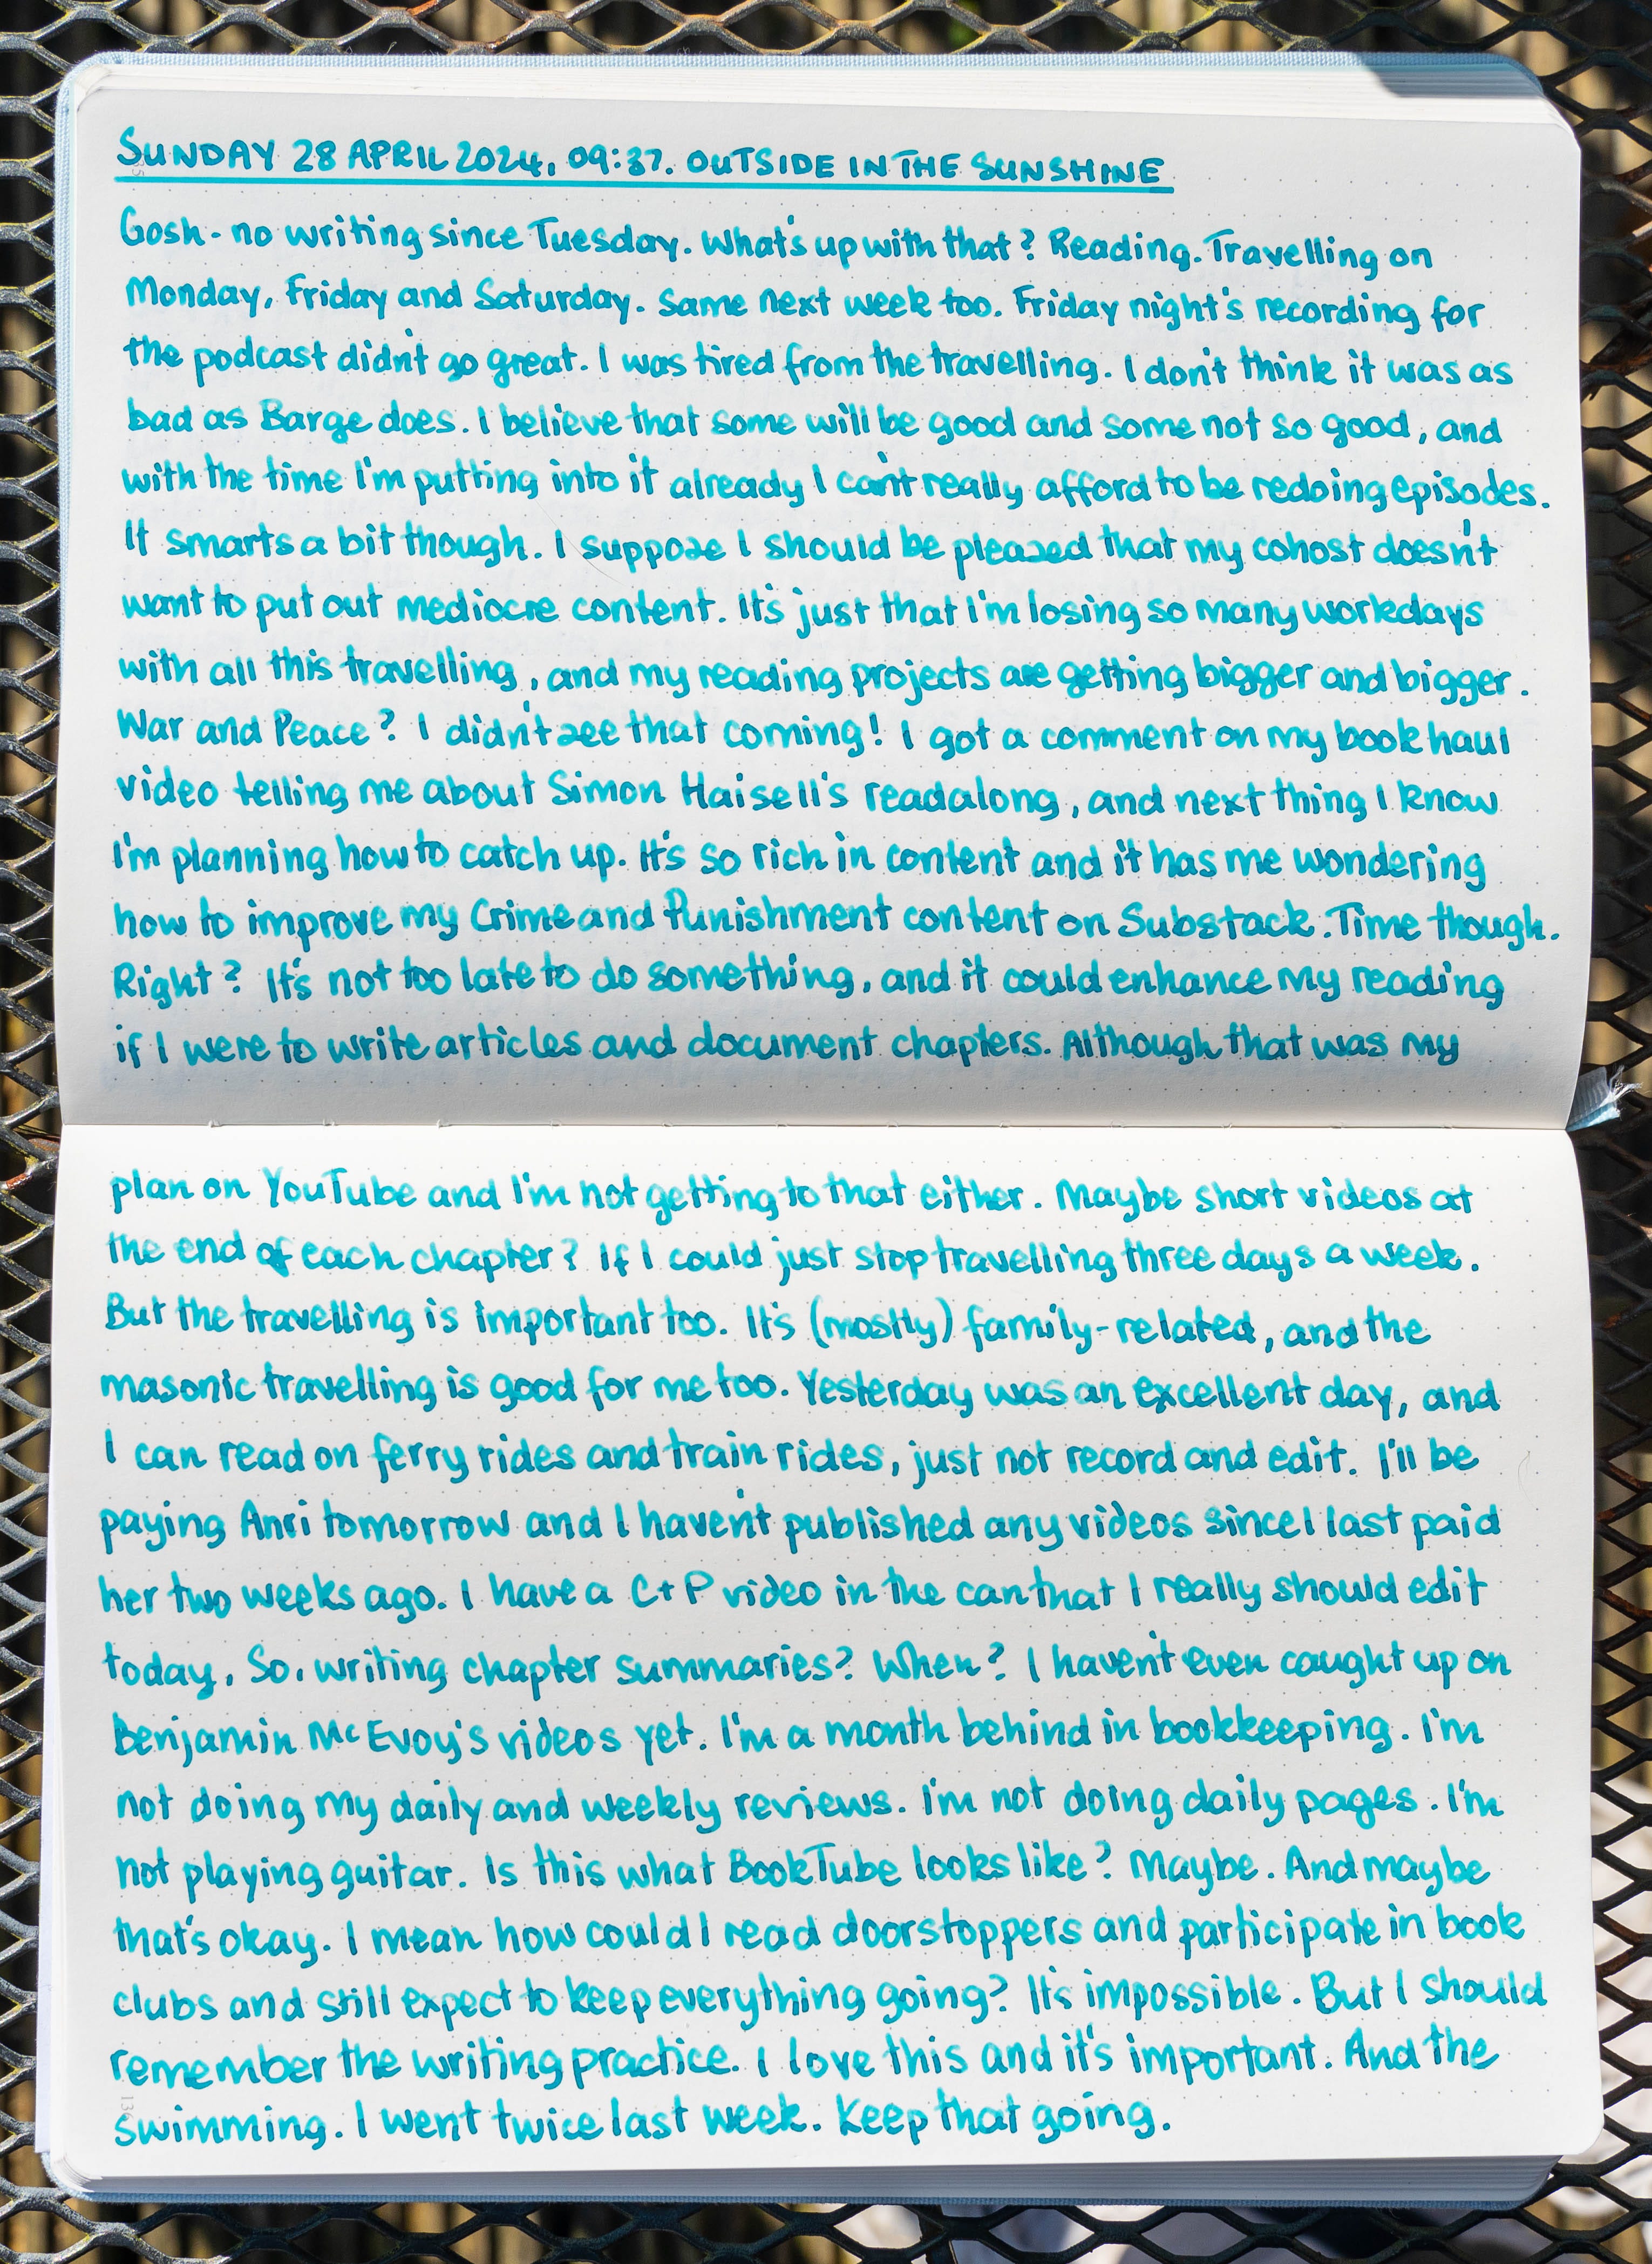 SUNDAY 28 APRIL 2024, 09:37. OUTSIDE IN THE SUNSHINE
Gosh - no writing since Tuesday. What's up with that? Reading. Travelling on
Monday, Friday and Saturday. Same next week too. Friday night's recording for
the podcast didn't go great. I was tired from the travelling. I don't think it was as
bad as Barge does. I believe that some will be good and some not so good, and
with the time I'm putting into it already I can't really afford to be redoing episodes.
It smarts a bit though. I suppose I should be pleased that my cohost doesn't
want to put out mediocre content. It's just that I'm losing so many workdays
with all this travelling, and my reading projects are getting bigger and bigger.
War and Peace? I didn't see that coming! I got a comment on my book haul
video telling me about Simon Haisell's readalong, and next thing I know
I'm planning how to catch up. It's so rich in content and it has me wondering
how to improve my Crime and Punishment content on Substack. Time though.
Right? It's not too late to do something, and it could enhance my reading
if I were to write articles and document chapters. Although that was my
plan on YouTube and I'm not getting to that either. Maybe short videos at
the end of each chapter? If I could just stop travelling three days a week.
But the travelling is important too. It's (mostly) family-related, and the
masonic travelling is good for me too. Yesterday was an excellent day, and
I can read on ferry rides and train rides, just not record and edit. I'll be
paying Anri tomorrow and I haven't published any videos since I last paid
her two weeks ago. I have a C+P video in the can that I really should edit
today. So, writing chapter summaries? When? I haven't even caught up on
Benjamin McEvoy's videos yet. I'm a month behind in bookkeeping. I'm
not doing my daily and weekly reviews. I'm not doing daily pages. I'm
not playing guitar. Is this what BookTube looks like? Maybe. And maybe
that's okay. I mean how could I read doorstoppers and participate in book
clubs and still expect to keep everything going? It's impossible. But I should
remember the writing practice. I love this and it's important. And the
swimming. I went twice last week. Keep that going.